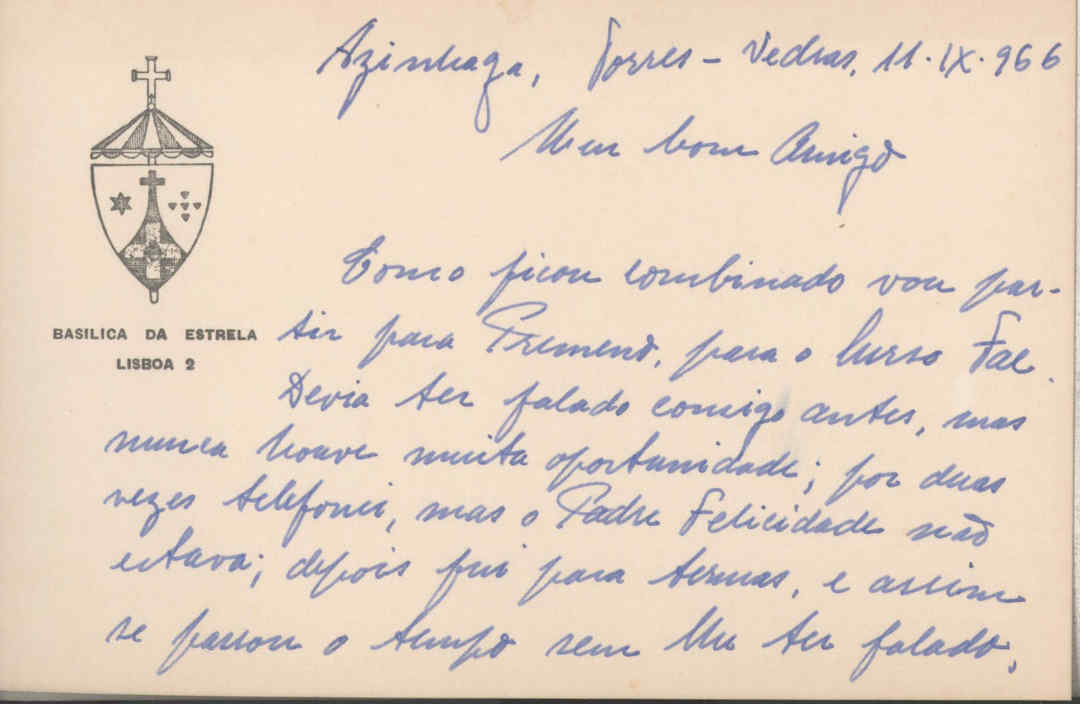 Azinhaga, Torres - Vedras, 11.IX.966
Meu bom Amigo
Como ficou combinado vou par-
BASILICA DA ESTRELA
LISBOA 2
tir para Tremend, para o Curso Fae.
Devia ter falado consigo antes, mas
nunca houve muita oportunidade; por duas
vezes telefonei, mas o Padre Felicidade não
estava; depois fui para termas, e assim
se passou o tempo sem lhe ter falado.